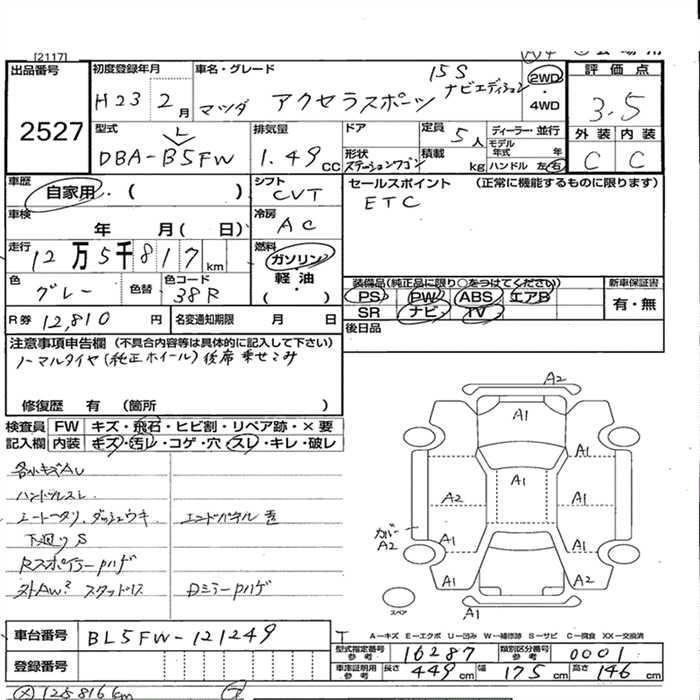 [2117]
出品番号
2527
初度登録年月
H23 2月
車名・グレード
マツダ アクセラスポーツ
15S
ナビエディション
2WD
4WD
評価点
3.5
外装 内装
C C
型式
DBA-BL5FW
排気量
1.49 CC
ドア
形状
ステーションワゴン
定員
5人
積載
kg
ディーラー・並行
モデル
年式 年
ハンドル 左・右
車歴
自家用・( )
シフト
CVT
セールスポイント (正常に機能するものに限ります)
ETC
車検
年 月( 日)
冷房
AC
走行
12万5千817km
燃料
ガソリン
軽・油
・( )
色
グレー
色替
色コード
38R
装備品(純正品に限り○をつけてください)
PS PW ABS エアB
SR ナビ TV
新車保証書
有・無
R券 12,810円
名変通知期限 月 日
後日品
注意事項申告欄 (不具合内容等は具体的に記入して下さい)
ノーマルタイヤ(純正ホイール)後席乗せこみ
修復歴 有 (箇所 )
検査員
記入欄
FW キズ・飛石・ヒビ割・リペア跡・×要
内装 キズ・汚レ・コゲ・穴・スレ・キレ・破レ
ハンドルスレ
シートヘタリ、ダッシュウキ
エンドパネル
下廻りS
Rスポイラーハゲ
外AW? スタッドレス
Dミラーハゲ
A2
A1
A1
A1
A1
A2
A1
カバー
A2
A1
A1
A1
A2
A1
スペア
A―キズ E―エクボ U―凹み W―補修跡 S―サビ C―腐食 XX―交換済
車台番号
BL5FW-121249
登録番号
型式指定番号
参考
16287
類別区分番号
参考
0001
車庫証明用
参考
長さ 449cm
幅 175cm
高さ 146cm
125816km